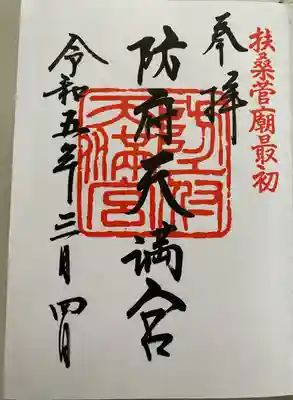 扶桑菅廟最初
奉拝
防府天満宮
防府天満宮
令和五年三月四日